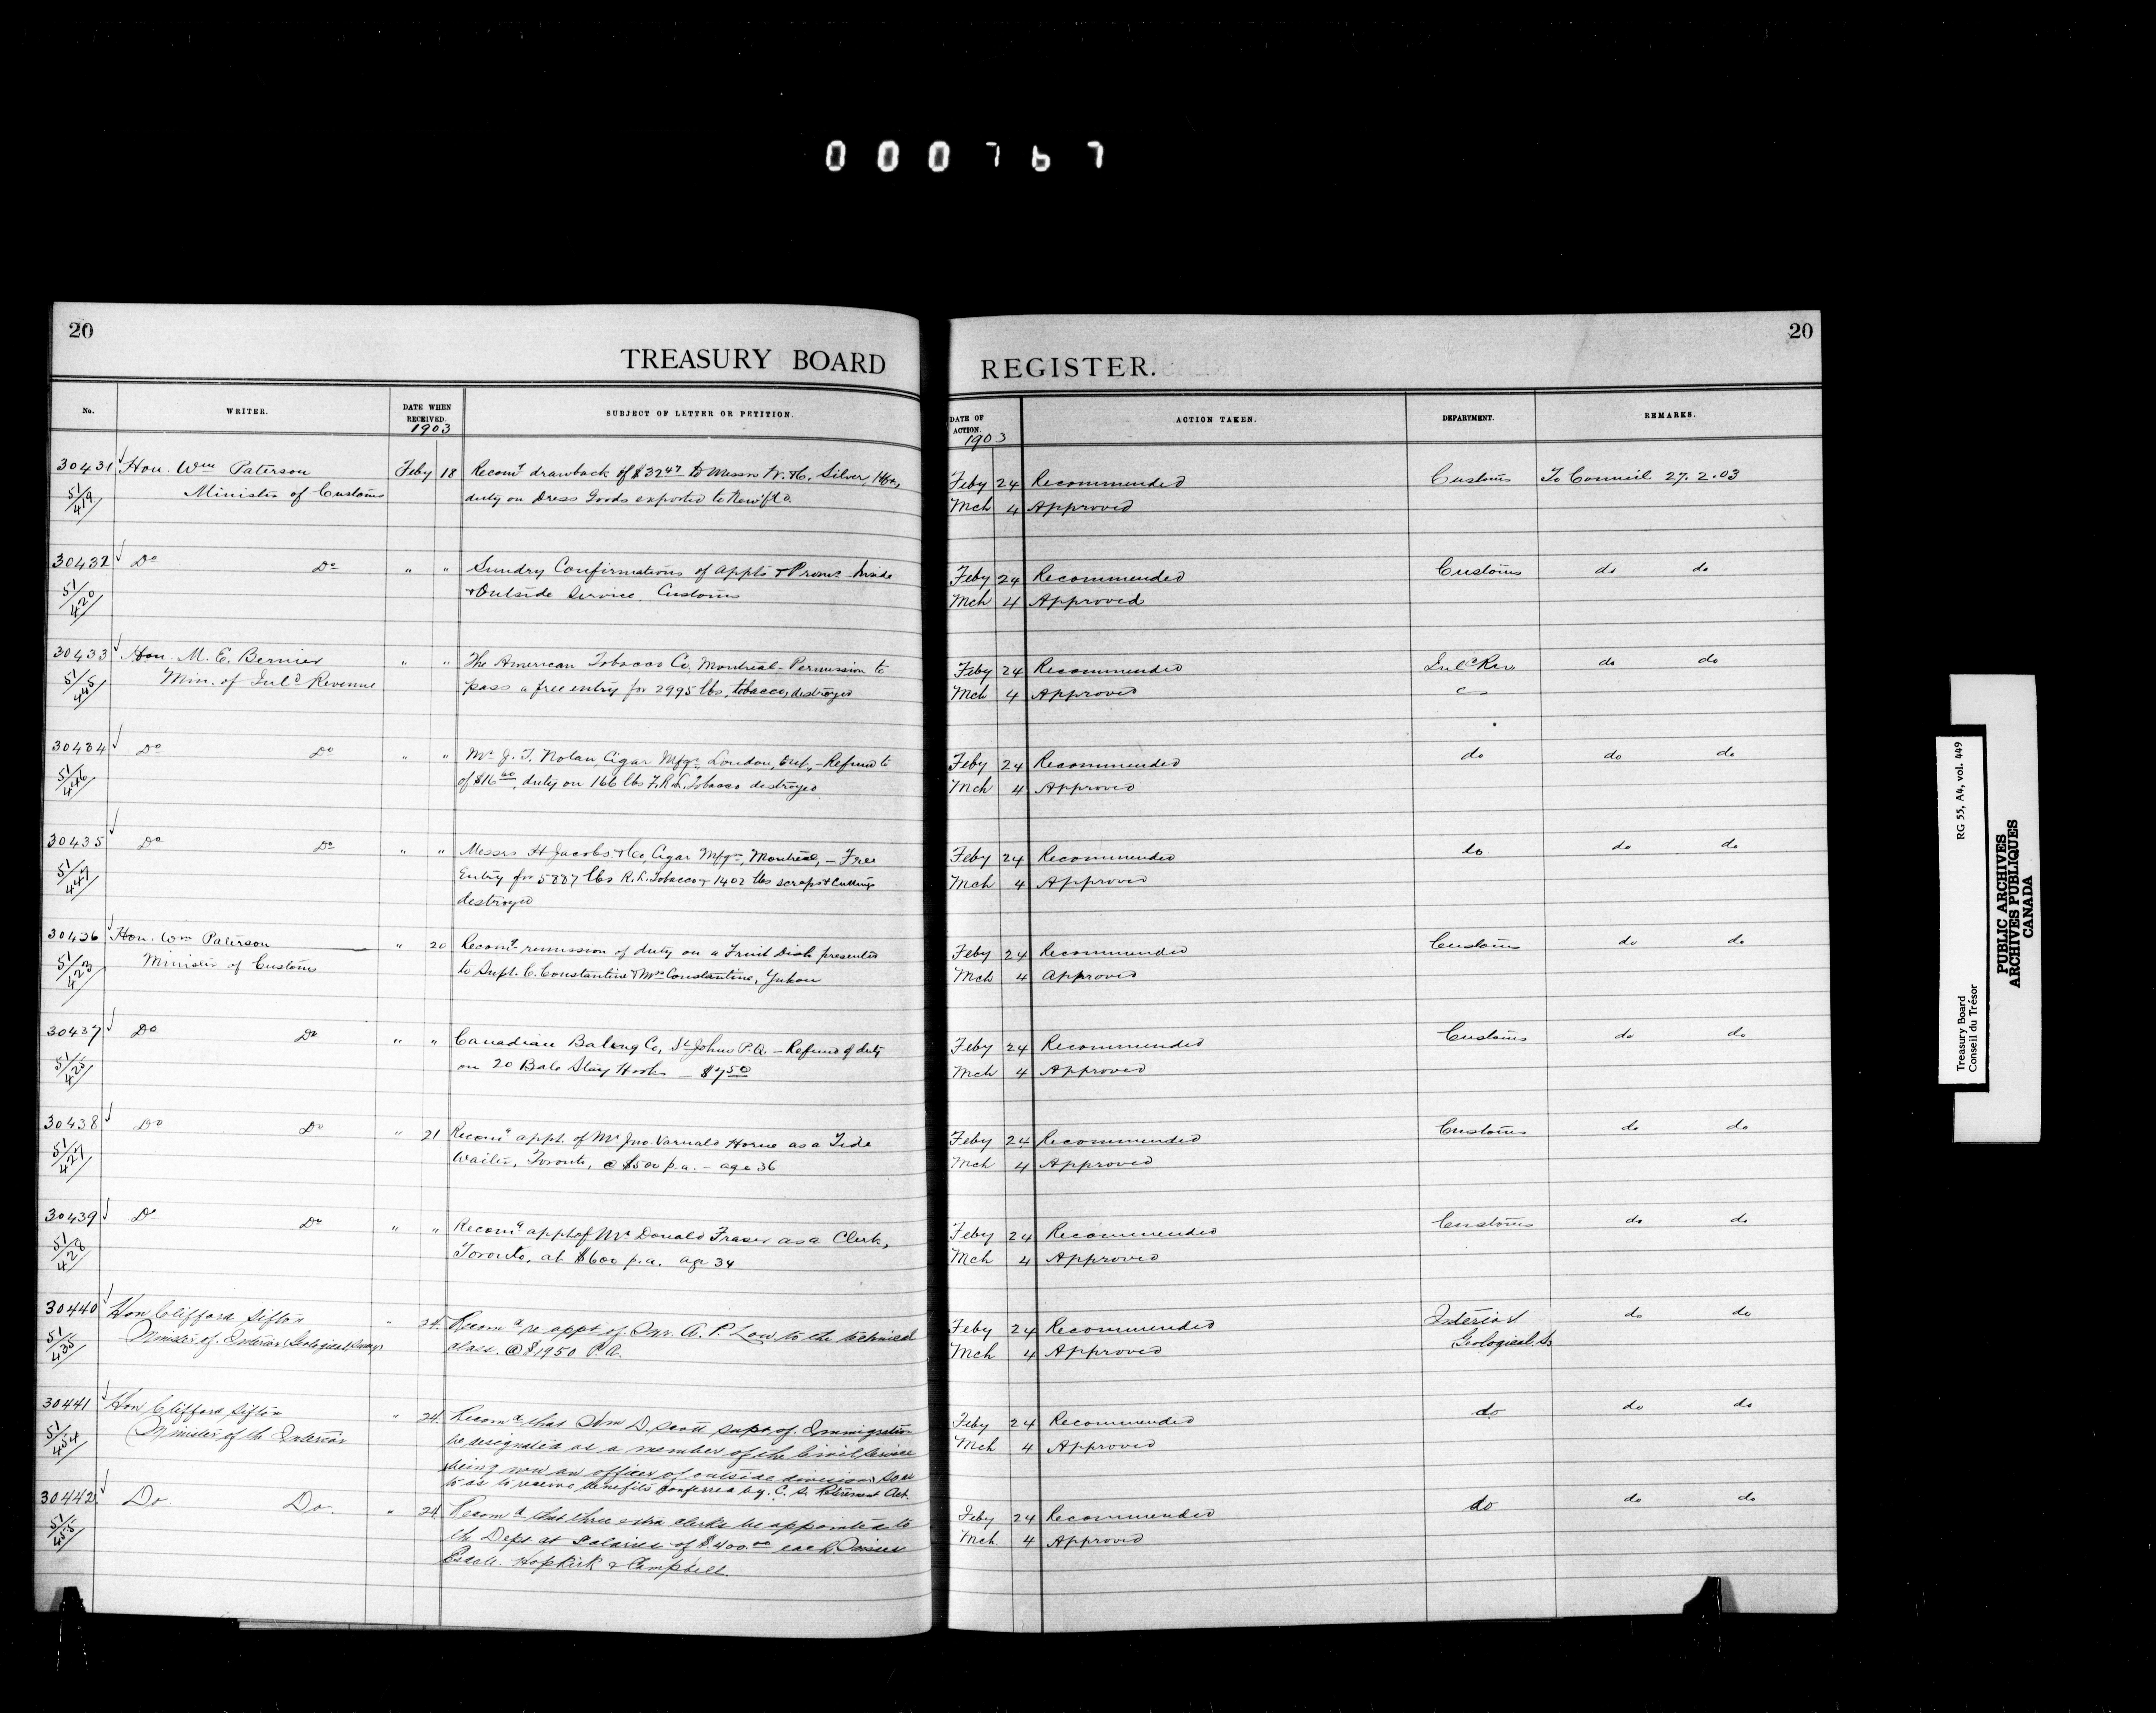 000767
20
20
TREASURY BOARD
REGISTER.
No. WRITER. DATE WHEN RECEIVED. SUBJECT OF LETTER OR PETITION. DATE OF ACTION. ACTION TAKEN. DEPARTMENT. REMARKS.
1903 1903
30431 Hon. Wm Paterson Feby 18 Recomg drawback of $32.47 to Messrs W. & C. Silver, Hfx, Feby 24 Recommended Customs To Council 27.2.03
51/419 Minister of Customs duty on Dress Goods exported to Newf'ld. Mch 4 Approved
30432 Do Do " " Sundry Confirmations of appts & Proms Inside Feby 24 Recommended Customs do do
51/420 & Outside Service. Customs Mch 4 Approved
30433 Hon. M. E. Bernier " " The American Tobacco Co, Montreal - Permission to Feby 24 Recommended Inld Rev do do
51/445 Min. of Inld Revenue pass a free entry for 2995 lbs, tobacco, destroyed Mch 4 Approved
30434 Do Do " " Mr J. T. Nolan Cigar Mfgr, London, Ont, - Refund to Feby 24 Recommended do do do
51/446 of $16.60, duty on 166 lbs F. R. L. Tobacco destroyed Mch 4 Approved
30435 Do Do " " Messrs H Jacobs & Co, Cigar Mfgrs, Montreal, - Free Feby 24 Recommended do do do
51/447 Entry for 5887 lbs R. L. Tobacco & 1402 lbs scraps & cuttings Mch 4 Approved
destroyed
30436 Hon. Wm Paterson " 20 Recomg remission of duty on a Fruit Dish presented Feby 24 Recommended Customs do do
51/423 Minister of Customs to Supt. C. Constantine & Mrs Constantine, Yukon Mch 4 Approved
30437 Do Do " " Canadian Baling Co, St Johns P.Q. - Refund of duty Feby 24 Recommended Customs do do
51/425 on 20 Bale Stay Hooks - $7.50 Mch 4 Approved
30438 Do Do " 21 Recomg appt. of Mr Jno. Varnald Horne as a Tide Feby 24 Recommended Customs do do
51/427 Waiter, Toronto, @ $500 p.a. - age 36 Mch 4 Approved
30439 Do Do " " Recomg appt of Mr Donald Fraser as a Clerk, Feby 24 Recommended Customs do do
51/428 Toronto, at $600 p.a. age 34 Mch 4 Approved
30440 Hon Clifford Sifton " 24. Recomg re appt of Mr. A. P. Low to the technical Feby 24 Recommended Interior do do
51/435 Minister of Interior (Geological Survey) class. @ $1950 P.A. Mch 4 Approved Geological S.
30441 Hon Clifford Sifton " 24. Recomg that Wm D. Scott Supt of Immigration Feby 24 Recommended do do do
51/454 Minister of the Interior be designated as a member of the Civil Service Mch 4 Approved
(being now an officer of outside division) so as
to as to receive benefits conferred by C. S. Retirement Act.
30442 Do Do " 24. Recomg that three extra clerks be appointed to Feby 24 Recommended do do do
51/455 the Dept at Salaries of $400.00 each. Mch. 4 Approved
Hopkirk & Campbell.
Treasury Board
Conseil du Trésor
RG 55, A4, vol. 449
PUBLIC ARCHIVES
ARCHIVES PUBLIQUES
CANADA